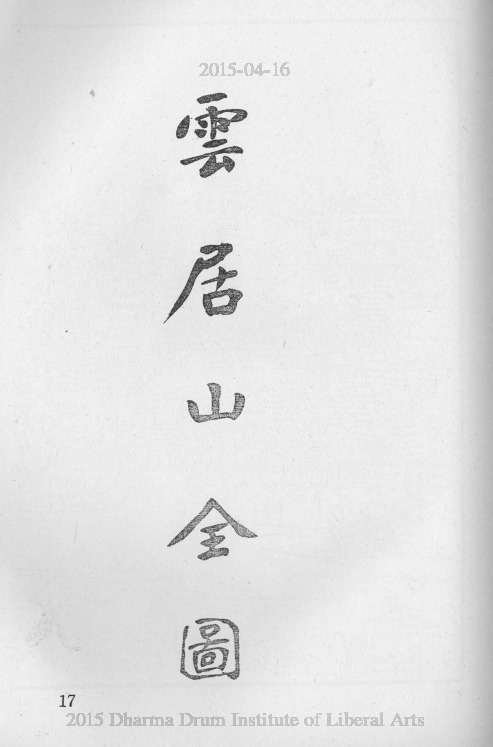 2015-04-16
雲居山全圖
17
2015 Dharma Drum Institute of Liberal Arts